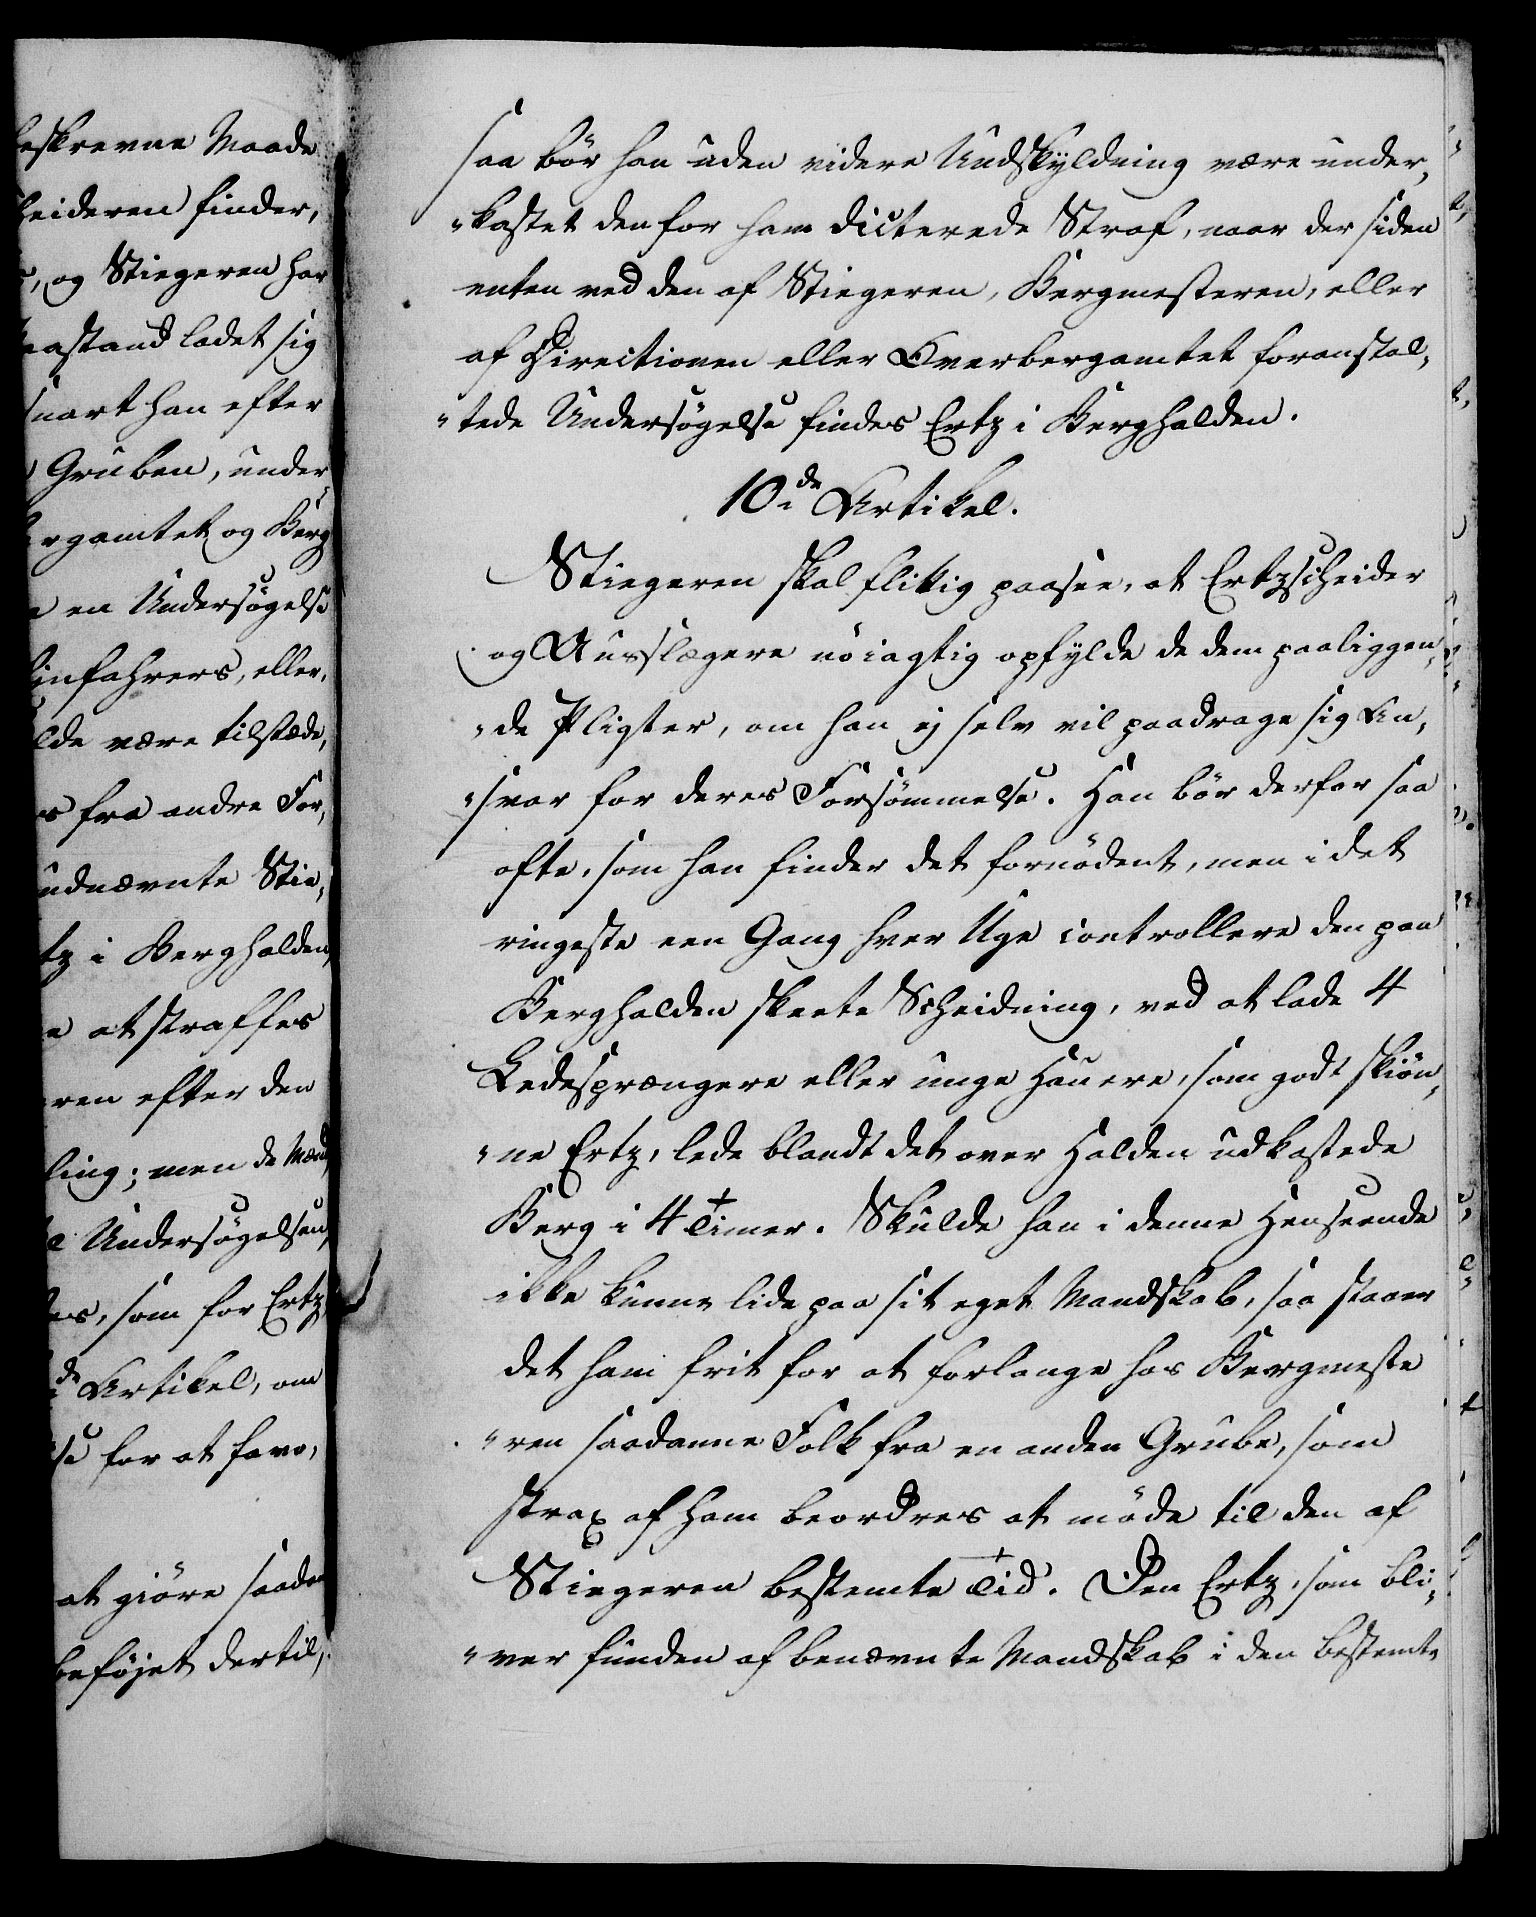 eskrevne Maade
heideren finder,
, og Stiegeren har
aastand ladet sig
snart han efter
Gruben, under„
rgamtet og Berg
en Undersøgelse
infahrers, eller,
lde være tilstæde,
s fra andre For„
udnævnte Stie„
tz i Berghalden,
at straffes
ren efter den
ling; men de Mænd
Undersøgelsen,
es, som for Ertz,
de Artikel, om
se for at favo„
at giöre saadan
beföjet dertil,
saa bör han uden videre Undskyldning være under„
„kastet den for ham dicterede Straf, naar der siden
enten ved den af Stiegeren, Bergmesteren, eller
af Directionen eller Overbergamtet foranstal„
„tede Undersögelse findes Ertz i Berghalden.
10de Artikel.
Stiegeren skal flitig paasee, at Ertzscheider
og Ausslægere nöiagtig opfylde de dem paaliggen„
„de Pligter, om han ej selv vil paadrage sig An„
„svar for deres Forsömmelse. Han bör derfor saa
ofte, som han finder det fornödent, men i det
ringeste een Gang hver Uge controllere den paa
Berghalden skeete Scheidning, ved at lade 4
Ledesprængere eller unge Hauere, som godt skiön„
„ne Ertz, lede blandt det over Halden udkastede
Berg i 4 Timer. Skulde han i denne Henseende
ikke kunne lide paa sit eget Mandskab, saa staaer
det ham frit for at forlange hos Bergmeste
„ren saadanne Folk fra en anden Grube, som
strax af ham beordres at möde til den af
Stiegeren bestemte Tid. Den Ertz, som bli„
„ver funden af benævnte Mandskab i den bestemte